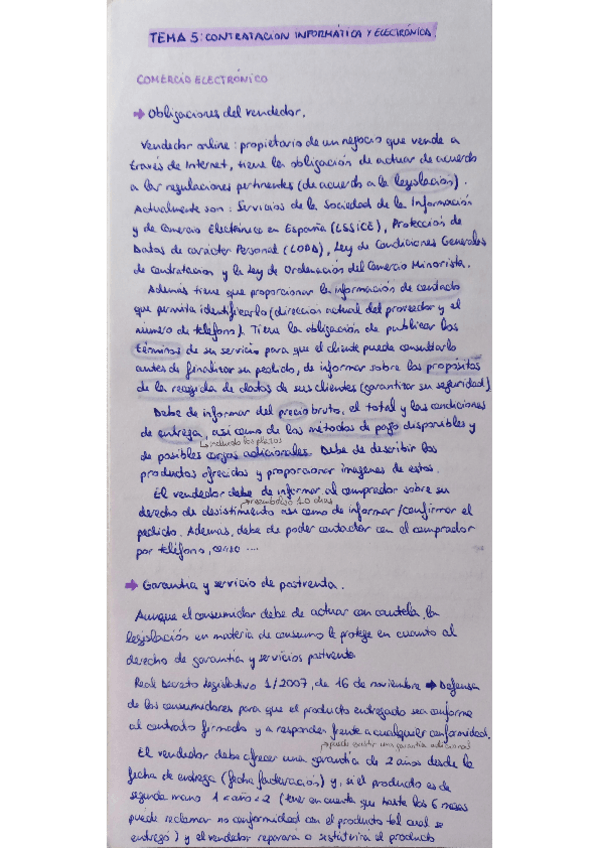 TEMA 5: CONTRATACION INFORMÁTICA Y ELECTRÓNICA
COMERCIO ELECTRÓNICO
→ Obligaciones del vendedor.
Vendedor online: propietario de un negocio que vende a
través de Internet, tiene la obligación de actuar de acuerdo
a las regulaciones pertinentes (de acuerdo a la legislación).
Actualmente son: Servicios de la Sociedad de la Información
y de Comercio Electrónico en España (LSSICE), Protección de
Datos de carácter Personal (LOPD), Ley de Condiciones Generales
de Contratacion y la Ley de Ordenación del Comercio Minorista.
Además tiene que proporcionar la información de contacto
que permita identificarlo (dirección actual del proveedor y el
número de teléfono). Tiene la obligación de publicar los
términos de su servicio para que el cliente pueda consultarlo
antes de finalizar su pedido, de informar sobre los propósitos
de la recogida de datos de sus clientes (garantizar su seguridad)
Debe de informar del precio bruto, el total y las condiciones
de entrega, así como de los métodos de pago disponibles y
↳ incluido los plazos
de posibles cargos adicionales. Debe de describir los
productos ofrecidos y proporcionar imagenes de estos.
El vendedor debe de informar al comprador sobre su
reembolso 10 dias
derecho de desistimiento asi como de informar/confirmar el
pedido. Ademas, debe de poder contactar con el comprador
por teléfono, correo ....
→ Garantia y servicio de postventa.
Aunque el consumidor debe de actuar con cautela, la
legislación en materia de consumo le protege en cuanto al
derecho de garantía y servicios postventa
Real Decreto legislativo 1/2007, de 16 de noviembre → Defensa
de los consumidores para que el producto entregado sea conforme
al contrato firmado y a responder frente a cualquier conformidad.
puede existir una garantía adicional
El vendedor debe ofrecer una garantía de 2 años desde la
fecha de entrega (fecha facturación) y, si el producto es de
segunda mano 1 < año < 2 (tener en cuenta que hasta los 6 meses
puede reclamar no conformidad con el producto tal cual se
entregó) y el vendedor reparará o sustituirá el producto